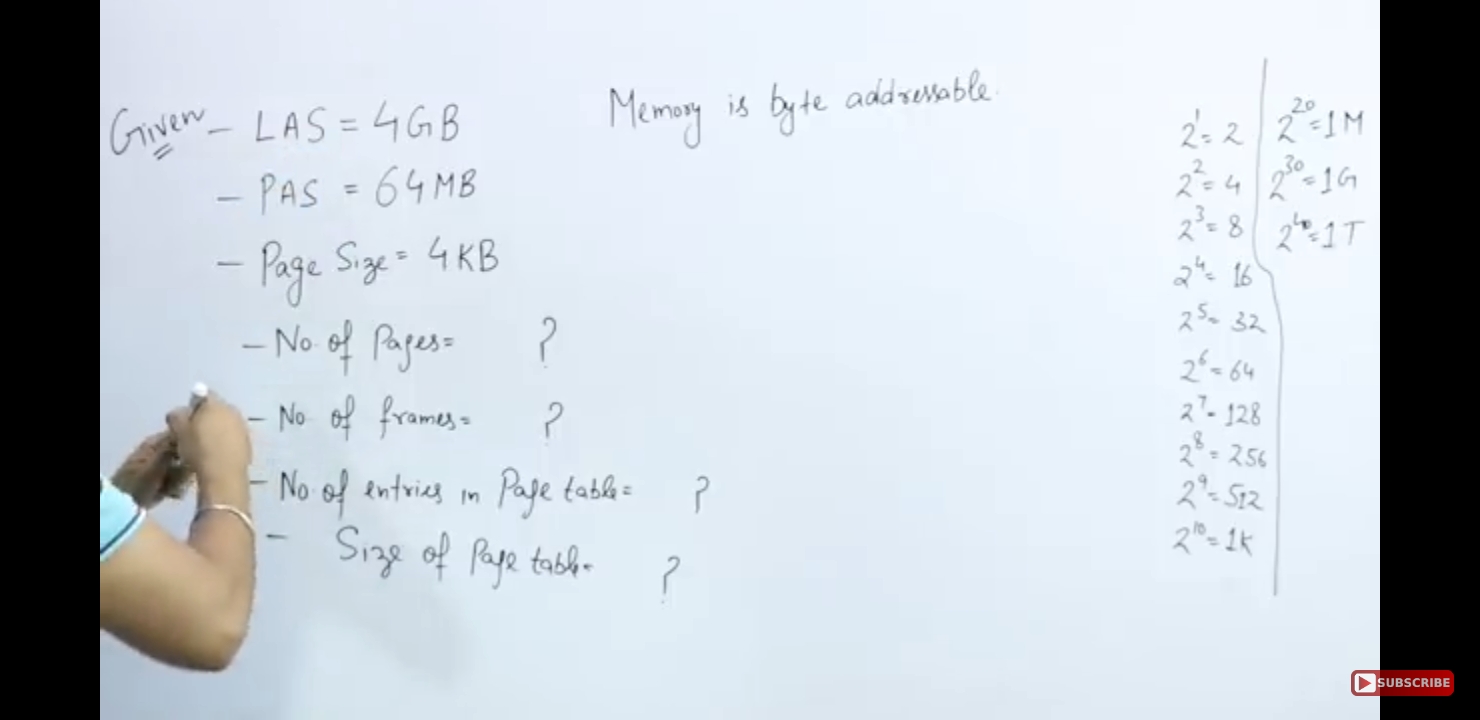 Given - LAS = 4GB
- PAS = 64MB
- Page Size = 4KB
- No. of Pages = ?
- No. of frames = ?
- No. of entries in Page table = ?
- Size of Page table = ?
Memory is byte addressable.
2¹ = 2
2² = 4
2³ = 8
2⁴ = 16
2⁵ = 32
2⁶ = 64
2⁷ = 128
2⁸ = 256
2⁹ = 512
2¹⁰ = 1K
2²⁰ = 1M
2³⁰ = 1G
2⁴⁰ = 1T
SUBSCRIBE